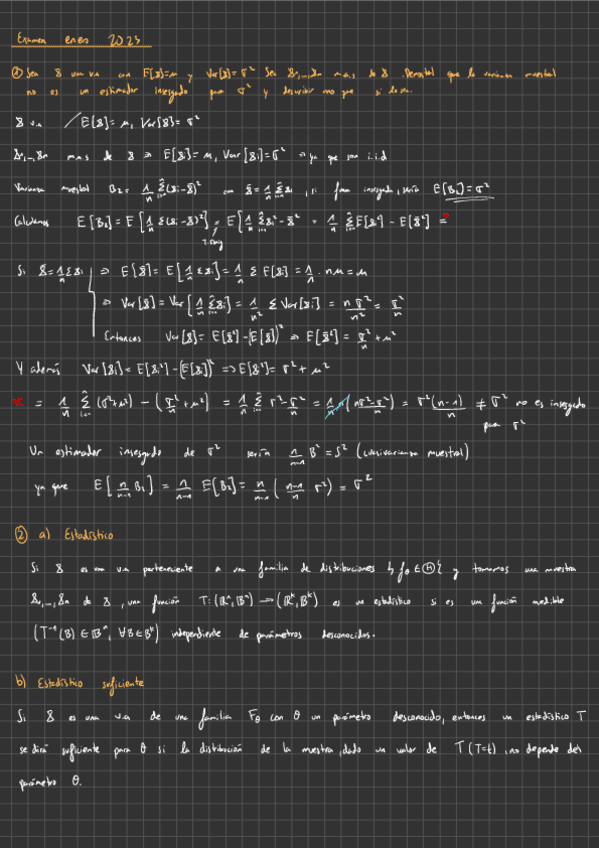 Examen enero 2023
① Sea ξ una va con E[ξ]=μ y Var[ξ]=σ² Sea ξ₁,...,ξn m.a.s de ξ. Demostrar que la varianza muestral
no es un estimador insesgado para σ² y describir uno que si lo sea.
ξ v.a / E[ξ]=μ, Var[ξ]=σ²
ξ₁,...,ξn m a s de ξ ⇒ E[ξi]=μ, Var[ξi]=σ² → ya que son i.i.d
Varianza muestral B₂ = 1/n Σ(ξi-ξ̄)² con ξ̄ = 1/n Σξi, si fuera insesgado, sería E[B₂]=σ²
Calculamos E[B₂] = E[1/n Σ(ξi-ξ̄)²] = E[1/n Σξi²-ξ̄²] = 1/n ΣE[ξi²] - E[ξ̄²] =
Si ξ̄ = 1/n Σξi ⇒ E[ξ̄] = E[1/n Σξi] = 1/n Σ E[ξi] = 1/n · nμ = μ
⇒ Var[ξ̄] = Var[1/n Σξi] = 1/n² Σ Var[ξi] = nσ²/n² = σ²/n
Entonces Var[ξ̄] = E[ξ̄²]-(E[ξ̄])² ⇒ E[ξ̄²] = σ²/n + μ²
Y además Var[ξi] = E[ξi²]-(E[ξi])² ⇒ E[ξi²] = σ² + μ²
* = 1/n Σ(σ²+μ²) - (σ²/n + μ²) = 1/n Σσ² - σ²/n = 1/n (nσ²-σ²) = σ²(n-1)/n ≠ σ² no es insesgado
para σ²
Un estimador insesgado de σ² sería n/n-1 B² = S² (cuasivarianza muestral)
ya que E[n/n-1 B₂] = n/n-1 E[B₂] = n/n-1 (n-1/n σ²) = σ²
② a) Estadístico
Si ξ es una v.a perteneciente a una familia de distribuciones {fθ ∈ Θ} y tomamos una muestra
ξ₁,...,ξn de ξ, una función T: (ℝⁿ,𝔹ⁿ) → (ℝᵏ,𝔹ᵏ) es un estadístico si es una función medible
(T⁻¹(B) ∈ 𝔹ⁿ, ∀B∈𝔹ᵏ) independiente de parámetros desconocidos.
b) Estadístico suficiente
Si ξ es una v.a de una familia Fθ con θ un parámetro desconocido, entonces un estadístico T
se dirá suficiente para θ si la distribución de la muestra, dado un valor de T (T=t), no depende del
parámetro θ.